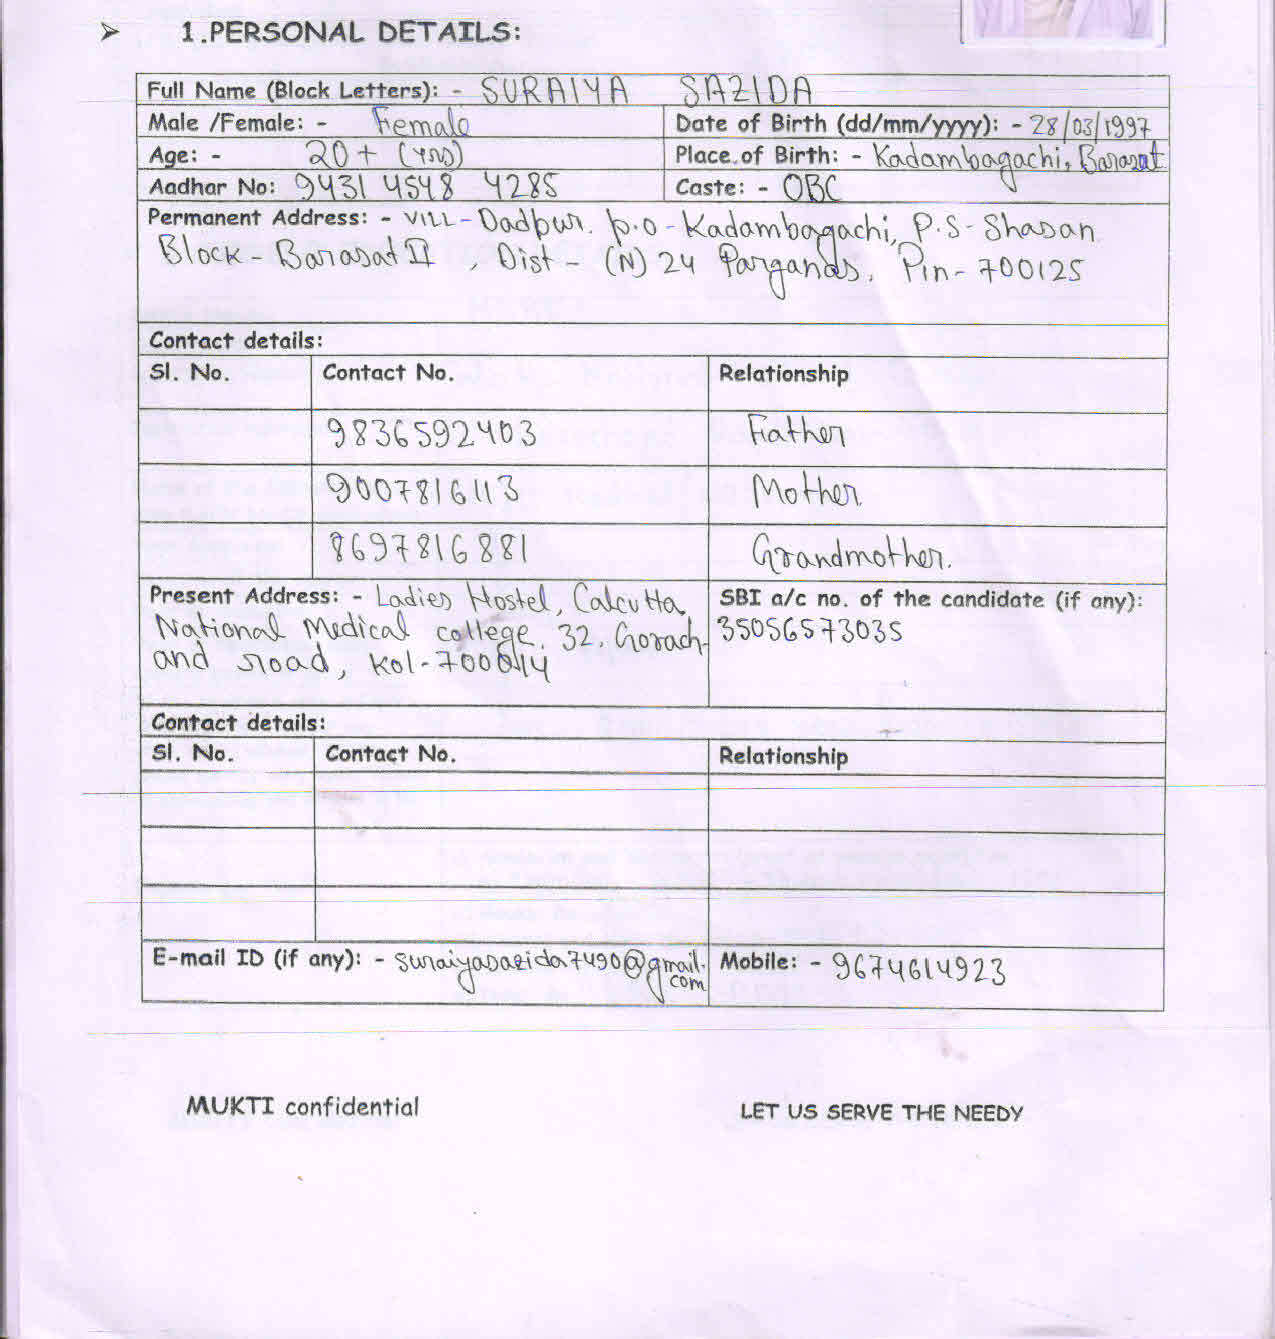 ➢ 1.PERSONAL DETAILS:
Full Name (Block Letters): - SURAIYA SAZIDA
Male /Female: - Female
Date of Birth (dd/mm/yyyy): - 28/03/1997
Age: - 20+ (yrs)
Place of Birth: - Kadambagachi, Barasat
Aadhar No: 9431 4548 4285
Caste: - OBC
Permanent Address: - VILL- Dadpur. P.O - Kadambagachi, P.S- Shasan
Block - Barasat II , Dist - (N) 24 Parganas, Pin- 700125
Contact details:
Sl. No. Contact No. Relationship
9836592403 Father
9007816113 Mother
8697816881 Grandmother.
Present Address: - Ladies Hostel, Calcutta
National Medical college. 32, Gorach-
and road, Kol-700014
SBI a/c no. of the candidate (if any):
35056573035
Contact details:
Sl. No. Contact No. Relationship
E-mail ID (if any): - suraiyasazida7490@gmail.
com
Mobile: - 9674614923
MUKTI confidential
LET US SERVE THE NEEDY